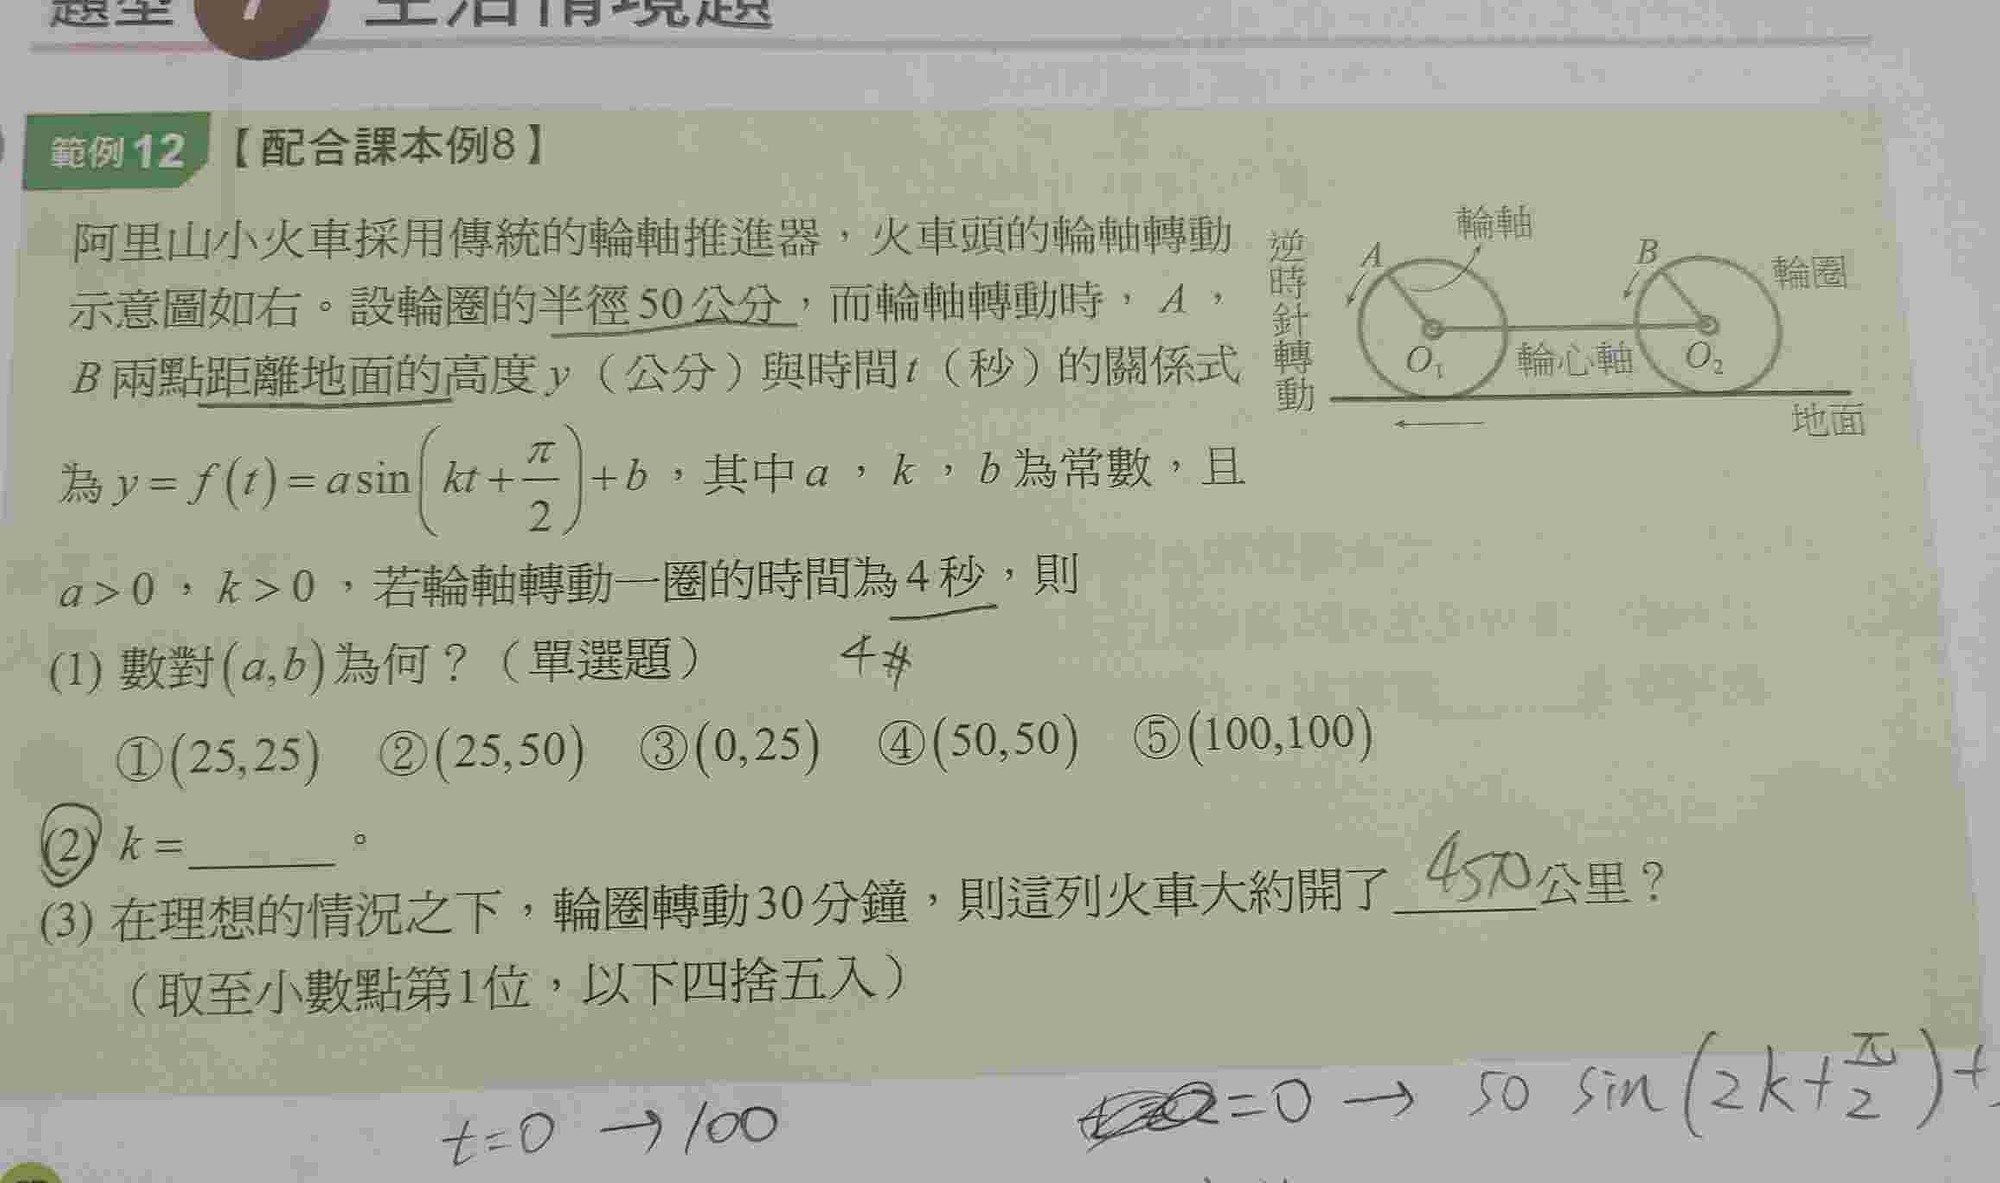 題型 7 生活情境題
範例12 【配合課本例8】
阿里山小火車採用傳統的輪軸推進器，火車頭的輪軸轉動
示意圖如右。設輪圈的半徑50公分，而輪軸轉動時，A，
B兩點距離地面的高度y（公分）與時間t（秒）的關係式
為y=f(t)=a sin(kt+π/2)+b，其中a，k，b為常數，且
a>0，k>0，若輪軸轉動一圈的時間為4秒，則
(1) 數對(a,b)為何？（單選題） 4#
①(25,25) ②(25,50) ③(0,25) ④(50,50) ⑤(100,100)
(2) k=______。
(3) 在理想的情況之下，輪圈轉動30分鐘，則這列火車大約開了 450π 公里？
（取至小數點第1位，以下四捨五入）
逆時針轉動
A
輪軸
B
輪圈
O₁
輪心軸
O₂
地面
t=0 →100
=0 → 50 sin(2k+π/2)+